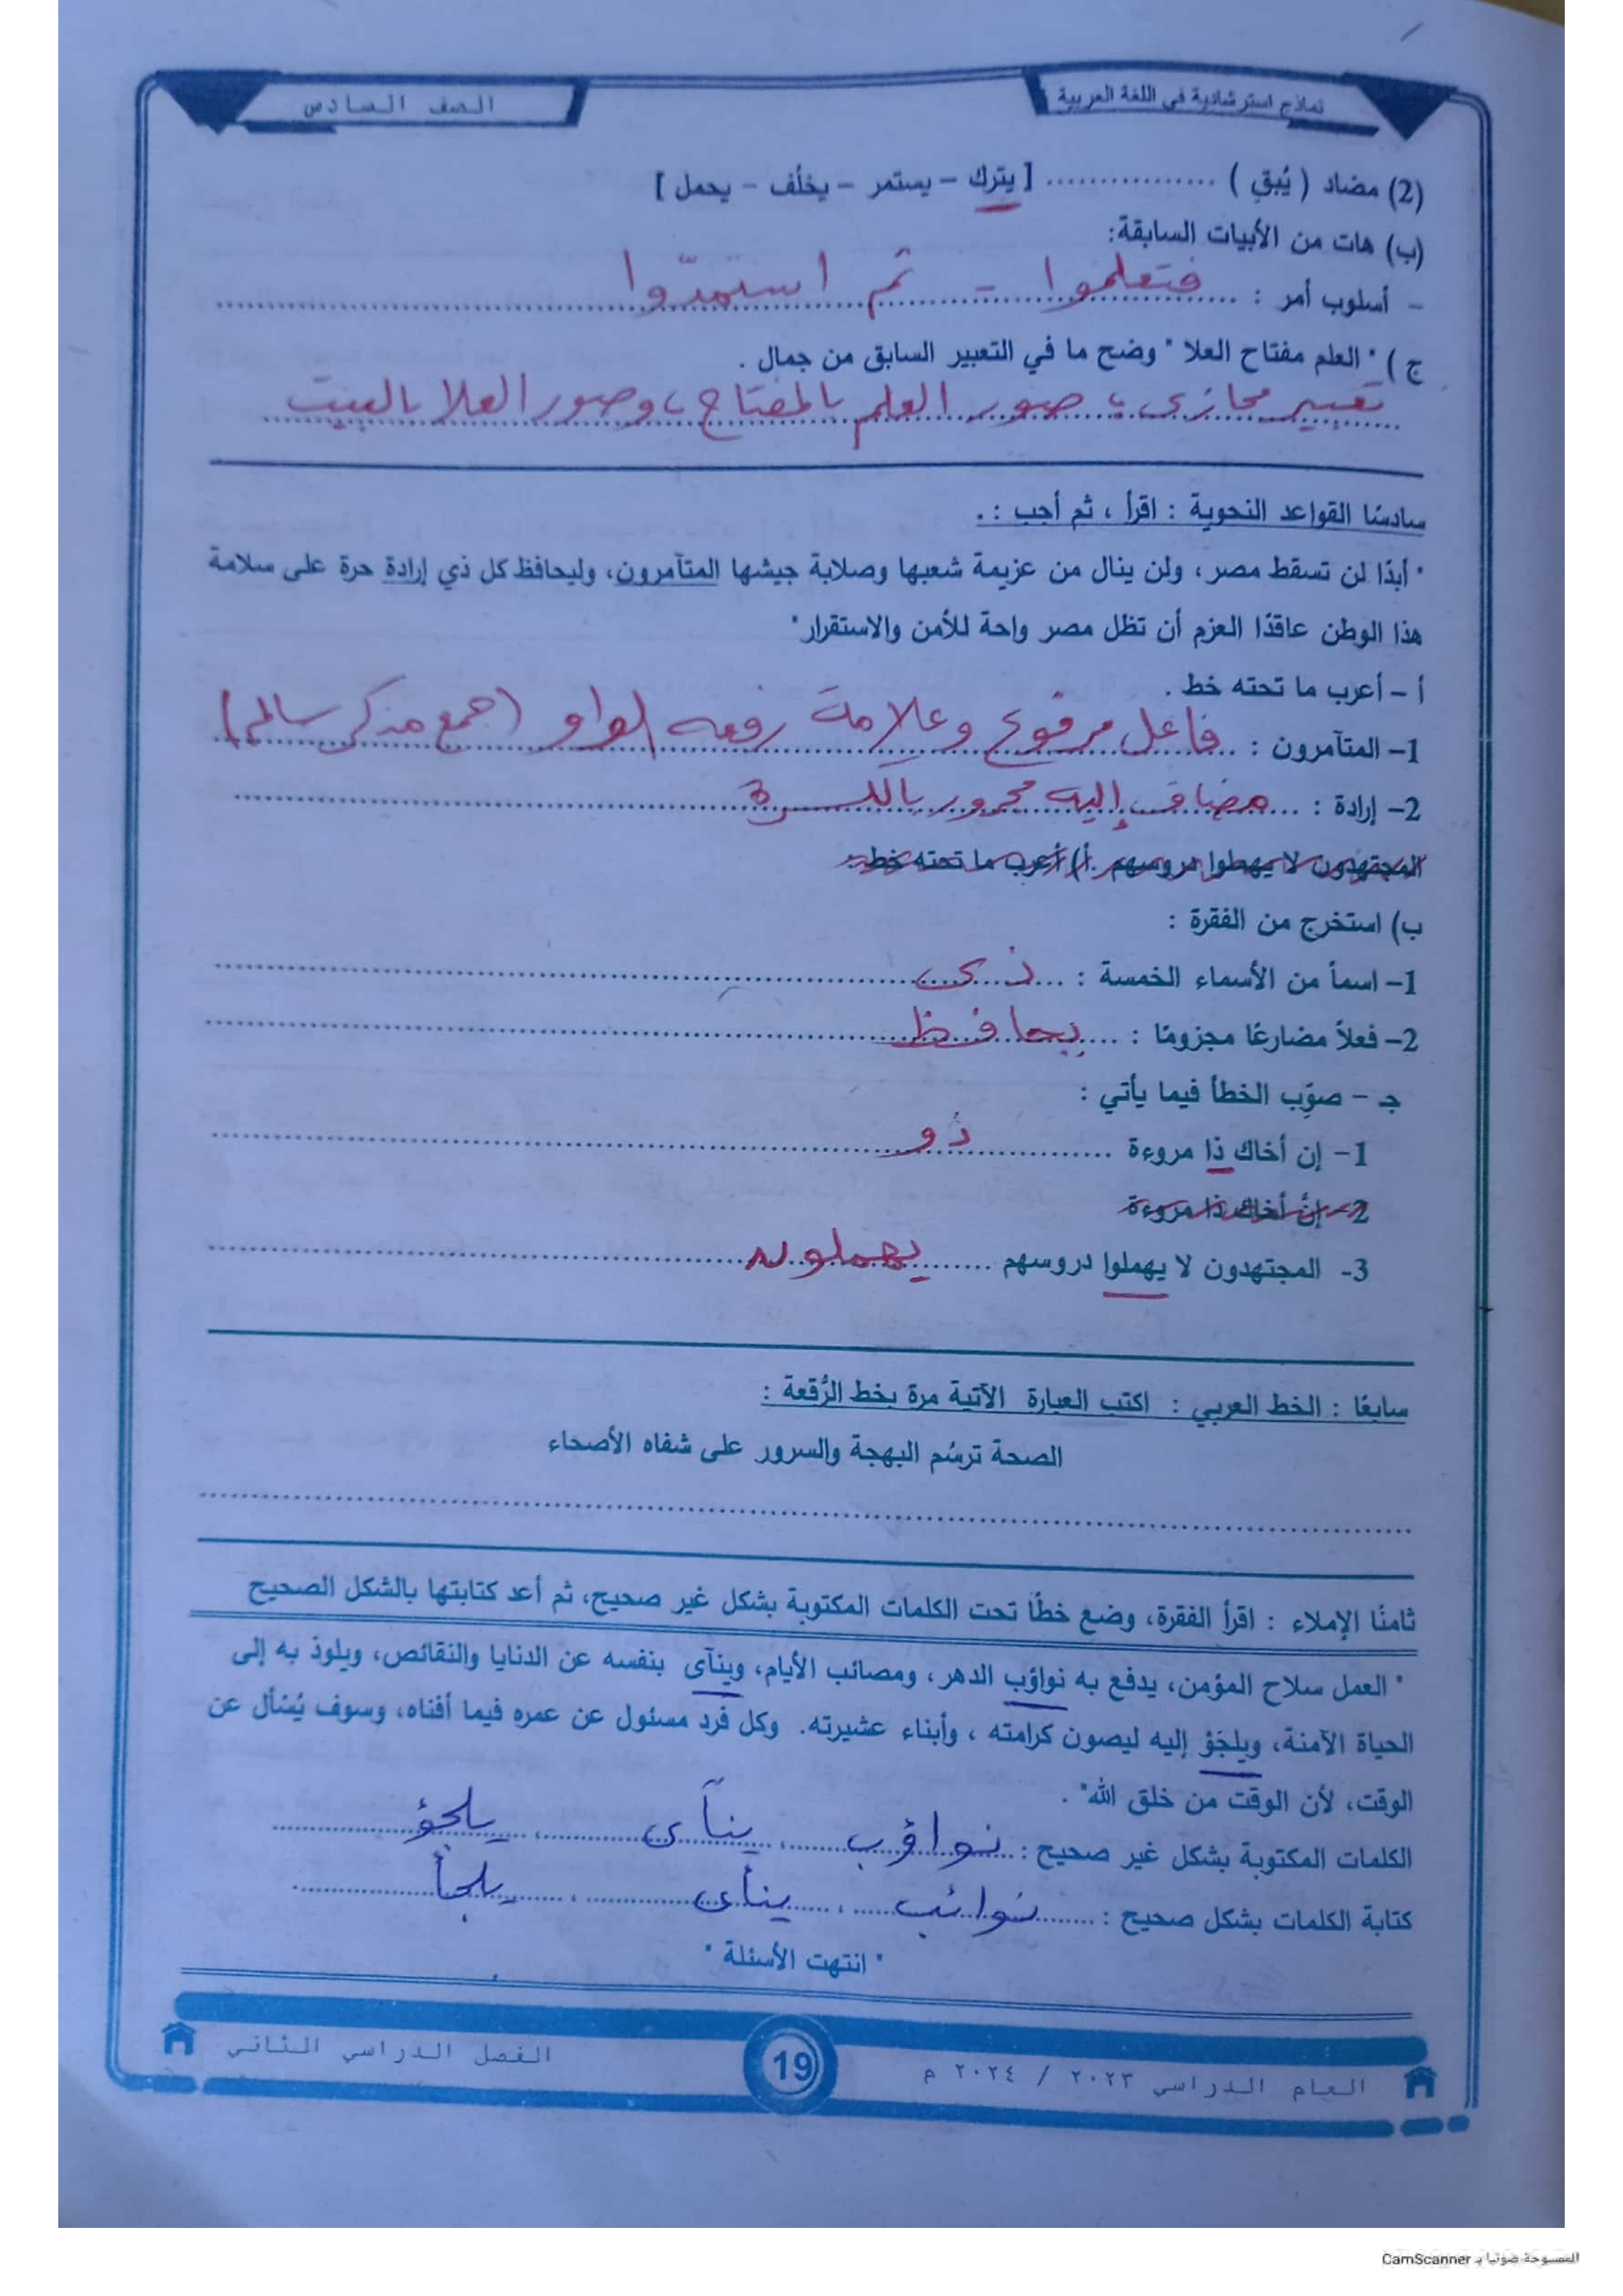 نماذج استرشادية في اللغة العربية
الصف السادس
(2) مضاد ( يُبقِ ) ................ [ يترك – يستمر – يخلّف – يحمل ]
(ب) هات من الأبيات السابقة:
– أسلوب أمر : فتعلموا – ثم استمدّوا
ج ) " العلم مفتاح العلا " وضح ما في التعبير السابق من جمال .
تعبير مجازى ، صور العلم بالمفتاح ، وصور العلا بالبيت
سادسًا القواعد النحوية : اقرأ ، ثم أجب : .
" أبدًا لن تسقط مصر ، ولن ينال من عزيمة شعبها وصلابة جيشها المتآمرون، وليحافظ كل ذي إرادة حرة على سلامة
هذا الوطن عاقدًا العزم أن تظل مصر واحة للأمن والاستقرار"
أ – أعرب ما تحته خط .
1– المتآمرون : فاعل مرفوع وعلامة رفعه الواو (جمع مذكر سالم)
2– إرادة : مضاف إليه مجرور بالكسرة
المجتهدون لا يهملوا دروسهم .أ) أعرب ما تحته خط .
ب) استخرج من الفقرة :
1– اسماً من الأسماء الخمسة : ذى
2– فعلاً مضارعًا مجزومًا : يحافظ
جـ – صوِّب الخطأ فيما يأتي :
1– إن أخاك ذا مروءة ذو
2– إنَّ أخاك ذا مروءة
3- المجتهدون لا يهملوا دروسهم يهملون
سابعًا : الخط العربي : اكتب العبارة الآتية مرة بخط الرُّقعة :
الصحة ترسُم البهجة والسرور على شفاه الأصحاء
ثامنًا الإملاء : اقرأ الفقرة، وضع خطًّا تحت الكلمات المكتوبة بشكل غير صحيح، ثم أعد كتابتها بالشكل الصحيح
" العمل سلاح المؤمن، يدفع به نواؤب الدهر ، ومصائب الأيام، وينآى بنفسه عن الدنايا والنقائص، ويلوذ به إلى
الحياة الآمنة، ويلجَؤ إليه ليصون كرامته ، وأبناء عشيرته. وكل فرد مسئول عن عمره فيما أفناه، وسوف يُسْأل عن
الوقت، لأن الوقت من خلق الله" .
الكلمات المكتوبة بشكل غير صحيح : نواؤب ، ينآى ، يلجؤ
كتابة الكلمات بشكل صحيح : نوائب ، ينأى ، يلجأ
" انتهت الأسئلة "
العام الدراسي ٢٠٢٣ / ٢٠٢٤ م
19
الفصل الدراسي الثاني
الممسوحة ضوئيا بـ CamScanner